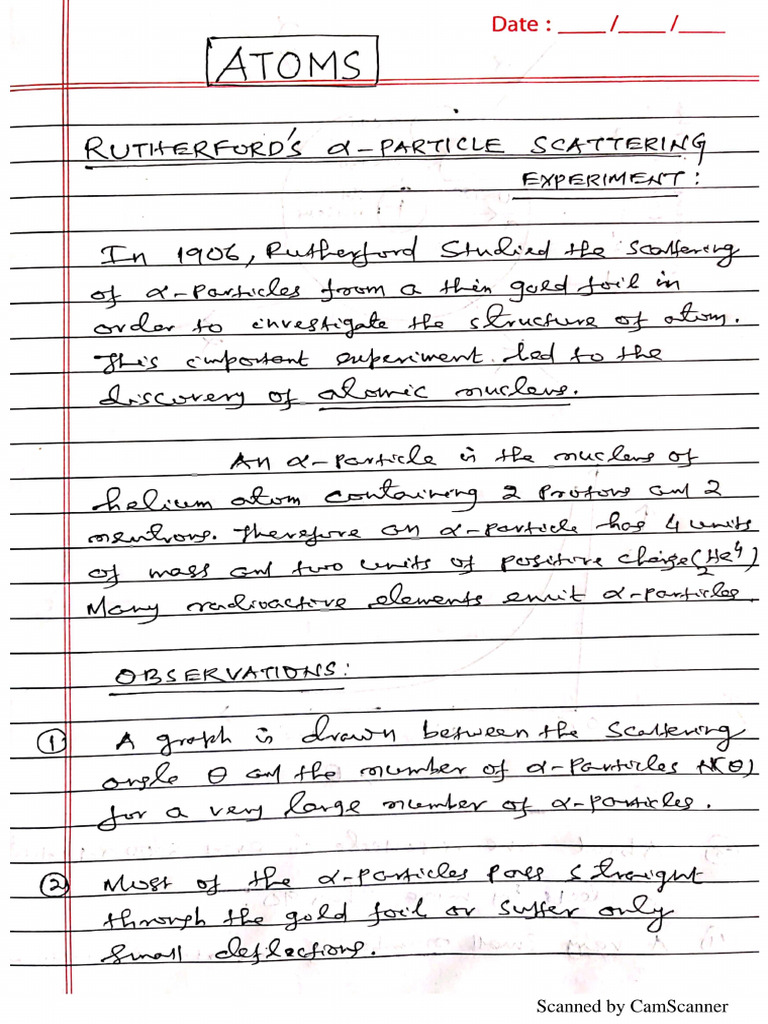 Date : ____ /____ /____
ATOMS
RUTHERFORD'S α-PARTICLE SCATTERING
EXPERIMENT:
In 1906, Rutherford Studied the scattering
of α-Particles from a thin gold foil in
order to investigate the structure of atom.
This important experiment led to the
discovery of atomic nucleus.
An α-particle is the nucleus of
helium atom containing 2 Protons and 2
neutrons. Therefore an α-particle has 4 units
of mass and two units of positive charge (₂He⁴)
Many radioactive elements emit α-particles.
OBSERVATIONS:
① A graph is drawn between the scattering
angle θ and the number of α-Particles N(θ)
for a very large number of α-particles.
② Most of the α-particles pass straight
through the gold foil or suffer only
small deflections.
Scanned by CamScanner